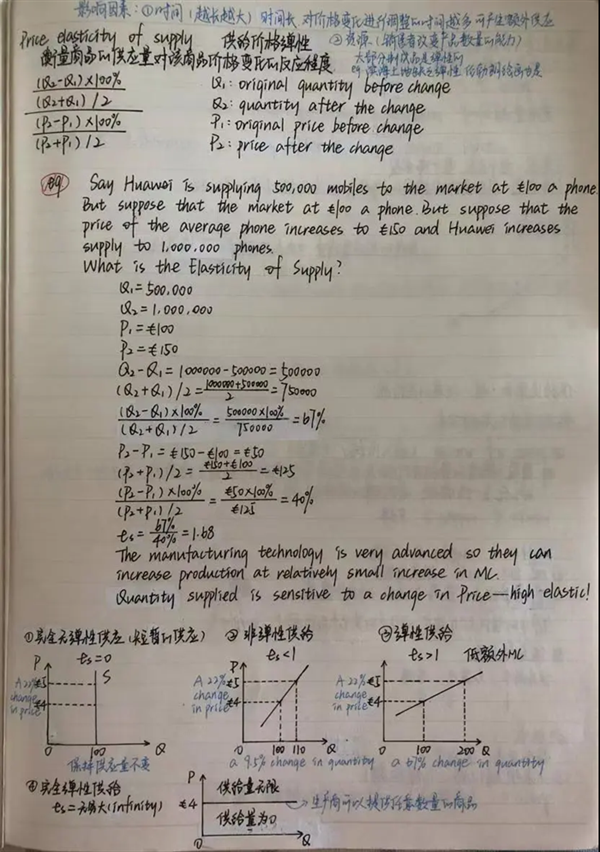 影响因素：①时间（越长越大）时间长 对价格变化进行调整的时间越多 可产生额外供应
Price elasticity of supply 供给价格弹性 ②资源（销售者改变产品数量的能力）
衡量商品的供应量对该商品价格变化的反应程度 大部分制成品是弹性的
(Q₂-Q₁)×100%
(Q₂+Q₁)/2
(P₂-P₁)×100%
(P₂+P₁)/2
Q₁: original quantity before change
Q₂: quantity after the change
P₁: original price before change
P₂: price after the change
例 Say Huawei is supplying 500,000 mobiles to the market at €100 a phone.
But suppose that the market at €100 a phone. But suppose that the
price of the average phone increases to €150 and Huawei increases
supply to 1,000,000 phones.
What is the Elasticity of Supply?
Q₁=500,000
Q₂=1,000,000
P₁=€100
P₂=€150
Q₂-Q₁=1000000-500000=500000
(Q₂+Q₁)/2=1000000+500000/2=750000
(Q₂-Q₁)×100%/(Q₂+Q₁)/2=500000×100%/750000=67%
P₂-P₁=€150-€100=€50
(P₂+P₁)/2=€150+€100/2=€125
(P₂-P₁)×100%/(P₂+P₁)/2=€50×100%/€125=40%
Es=67%/40%=1.68
The manufacturing technology is very advanced so they can
increase production at relatively small increase in MC.
Quantity supplied is sensitive to a change in Price—high elastic!
①完全无弹性供应（短暂的供应）
Es=0
P
S
A 22% change in price
€5
€4
0 100 Q
保持供应量不变
②非弹性供给
Es<1
P
A 22% change in price
€5
€4
0 100 110 Q
a 9.5% change in quantity
③弹性供给
Es>1 低额外MC
P
A 22% change in price
€5
€4
0 100 200 Q
a 67% change in quantity
④完全弹性供给
Es=无穷大(infinity)
P
供给量无限
€4
生产商可以提供任意数量的商品
供给量为0
0 Q